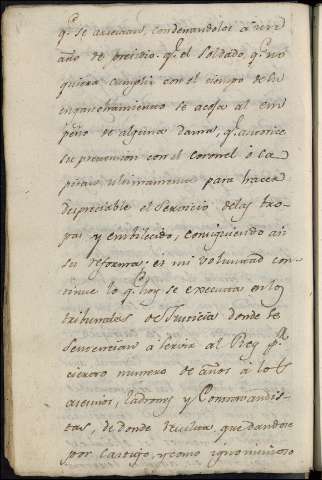 q.e se avecinan, condenandolos à seis
año de presidio. q.e el soldado, q.e no
quiera cumplir con el tiempo de su
enganchamiento se acoja al em
peño de alguna dama, q.e autorice
su pretencion con el Coronel ò Ca
pitan ultimamente para hacer
despreciable el servicio de las tro
pas y embilecido, consiguiendo asi
su reforma: es mi voluntad con
tinue lo q.e hoy se executa en los
tribunales de Justicia donde se
sentencian à servir al Rey p.r
cierto numero de años à los
asesinos, ladrones y Contravandis
tas, de donde resulta, que dandose
por castigo, y como ignominioso